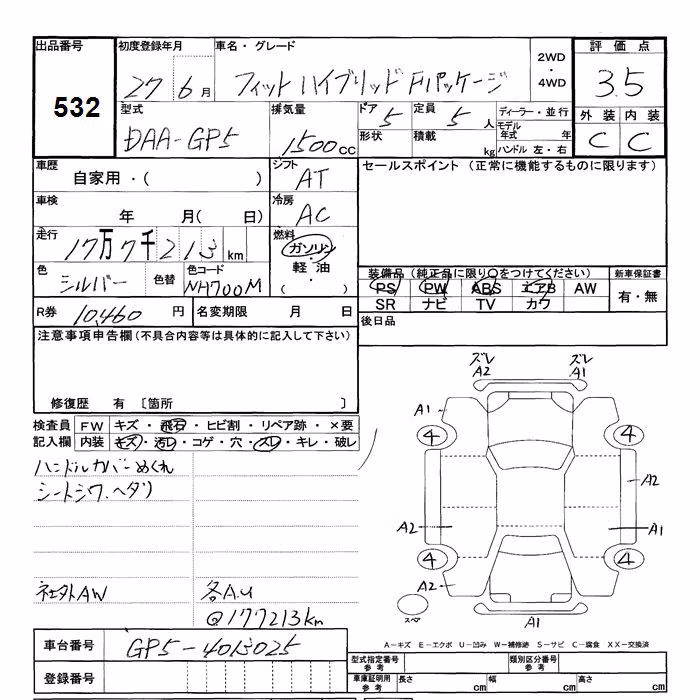 出品番号 初度登録年月 車名・グレード 2WD 評価点
532 27 6月 フィットハイブリッド Fパッケージ ・ 3.5
4WD
型式 排気量 ドア 定員 ディーラー・並行 外装 内装
DAA-GP5 1500cc 5 5人 モデル年式 年 C C
形状 積載 kg ハンドル 左・右
車歴 シフト セールスポイント (正常に機能するものに限ります)
自家用・( ) AT
車検 冷房
年 月( 日) AC
走行 燃料
17万7千213km ガソリン
色 色替 色コード ・軽油・ 装備品(純正品に限り○をつけてください) 新車保証書
シルバー NH700M ( ) PS PW ABS エアB AW 有・無
SR ナビ TV カワ
R券 10,460円 名変期限 月 日 後日品
注意事項申告欄(不具合内容等は具体的に記入して下さい)
修復歴 有 [箇所 ]
検査員 FW キズ・飛石・ヒビ割・リペア跡・×要
記入欄 内装 キズ・汚レ・コゲ・穴・スレ・キレ・破レ
ハンドルカバーめくれ
シートシワ.ヘタリ
社外AW 各A.U
@177213km
ズレ ズレ
A2 A1
A1
4 4
A2
A2 A1
4 4
A2
スペア A1
A-キズ E-エクボ U-凹み W-補修跡 S-サビ C-腐食 XX-交換済
車台番号 GP5-4013025
型式指定番号 参考 類別区分番号 参考
登録番号 車庫証明用 参考 長さ cm 幅 cm 高さ cm